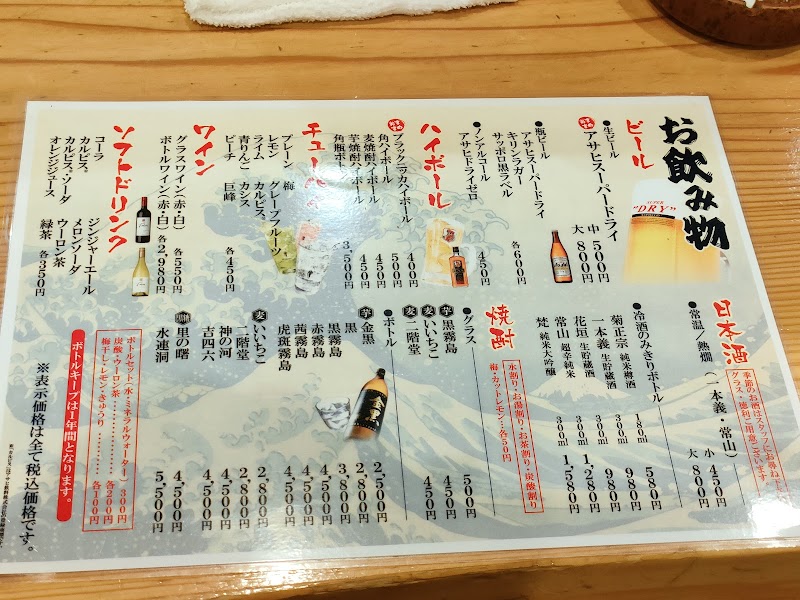 お飲み物
ビール
●生ビール
アサヒスーパードライ
中 500円
大 800円
SUPER
"DRY"
●瓶ビール
アサヒスーパードライ
キリンラガー
サッポロ黒ラベル
各600円
●ノンアルコール
アサヒドライゼロ
450円
ハイボール
ブラックニッカハイボール 400円
角ハイボール 500円
麦焼酎ハイボール 450円
芋焼酎ハイボール 450円
角瓶ボトル 3,500円
チューハイ
プレーン 梅
レモン グレープフルーツ
ライム カルピス
青りんご カシス
ピーチ 巨峰
各450円
ワイン
グラスワイン(赤・白) 各550円
ボトルワイン(赤・白) 各2,980円
ソフトドリンク
コーラ ジンジャーエール
カルピス メロンソーダ
カルピスソーダ ウーロン茶
オレンジジュース 緑茶
各350円
日本酒
季節のお酒はスタッフにお尋ね下さい
グラス・徳利ご用意ございます
●常温/熱燗 (一本義・常山)
小 450円
大 800円
●冷酒のみきりボトル
180ml 580円
菊正宗 純米樽酒 300ml 980円
一本義 生貯蔵酒 300ml 980円
花垣 生貯蔵酒 300ml 1,280円
常山 超辛純米 300ml 1,580円
梵 純米大吟醸
焼酎
水割り・お湯割り・お茶割り・炭酸割り
梅・カットレモン・各50円
●グラス
芋 黒霧島 500円
麦 いいちこ 450円
麦 二階堂 450円
●ボトル
芋 金黒 2,500円
黒 3,800円
黒霧島 2,800円
赤霧島 4,500円
茜霧島 4,500円
虎斑霧島 4,500円
麦 いいちこ 2,800円
二階堂 2,800円
神の河 4,500円
吉四六 4,500円
里の曙 4,500円
水連洞 5,500円
ボトルセット(水・ミネラルウォーター) 300円
炭酸・ウーロン茶 各200円
梅干し・レモン・きゅうり 各100円
ボトルキープは1年間となります。
※表示価格は全て税込価格です。